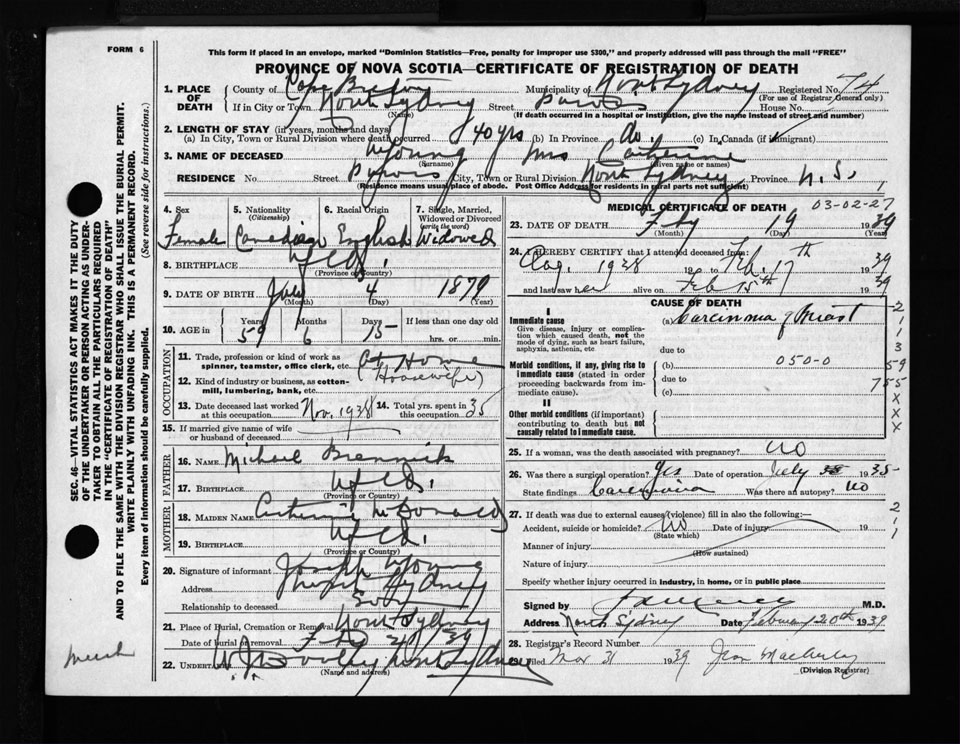 FORM 6
This form if placed in an envelope, marked "Dominion Statistics—Free, penalty for improper use $300," and properly addressed will pass through the mail "FREE"
PROVINCE OF NOVA SCOTIA—CERTIFICATE OF REGISTRATION OF DEATH
1. PLACE OF DEATH
County of Cape Breton Municipality of North Sydney Registered No. 74
(For use of Registrar General only)
If in City or Town North Sydney Street House No.
(Name) (If death occurred in a hospital or institution, give the name instead of street and number)
2. LENGTH OF STAY (in years, months and days)
(a) In City, Town or Rural Division where death occurred 40 yrs (b) In Province do. (c) In Canada (if immigrant)
3. NAME OF DECEASED Young Mrs Catherine
(Surname) (Given name or names)
RESIDENCE No. Street City, Town or Rural Division North Sydney Province N. S.
(Residence means usual place of abode. Post Office Address for residents in rural parts not sufficient)
4. Sex
Female
5. Nationality (Citizenship)
Canadian
6. Racial Origin
English
7. Single, Married, Widowed or Divorced (write the word)
Widowed
8. BIRTHPLACE Nfld.
(Province or Country)
9. DATE OF BIRTH July 4 1879
(Month) (Day) (Year)
10. AGE in
Years Months Days If less than one day old
59 6 15 hrs. or min.
OCCUPATION
11. Trade, profession or kind of work as spinner, teamster, office clerk, etc. At Home
12. Kind of industry or business, as cotton-mill, lumbering, bank, etc. (Housewife)
13. Date deceased last worked at this occupation Nov. 1938 14. Total yrs. spent in this occupation 35
15. If married give name of wife or husband of deceased
FATHER
16. NAME Michael Brennick
17. BIRTHPLACE Nfld.
(Province or Country)
MOTHER
18. MAIDEN NAME Catherine McDonald
19. BIRTHPLACE Nfld.
(Province or Country)
20. Signature of informant Joseph Young
Address North Sydney
Relationship to deceased Son
21. Place of Burial, Cremation or Removal North Sydney
Date of burial or removal Feb 21 / 39
22. UNDERTAKER North Sydney
(Name and address)
MEDICAL CERTIFICATE OF DEATH
03-02-27
23. DATE OF DEATH Feby 19 1939
(Month) (Day) (Year)
24. I HEREBY CERTIFY that I attended deceased from:
Aug. 1938 to Feb. 17th 1939
and last saw her alive on Feb 15th 1939
CAUSE OF DEATH
I
Immediate cause
Give disease, injury or complication which caused death, not the mode of dying, such as heart failure, asphyxia, asthenia, etc
(a) Carcinoma of Breast
due to
Morbid conditions, if any, giving rise to immediate cause (stated in order proceeding backwards from immediate cause).
(b) 050-0
due to
(c)
II
Other morbid conditions (if important) contributing to death but not causally related to immediate cause.
2
1
1
3
59
755
X
X
X
25. If a woman, was the death associated with pregnancy? no
26. Was there a surgical operation? Yes Date of operation July 1935
State findings Carcinoma Was there an autopsy? no
27. If death was due to external causes (violence) fill in also the following:—
Accident, suicide or homicide? No Date of injury 19
(State which)
Manner of injury
(How sustained)
Nature of injury
Specify whether injury occurred in industry, in home, or in public place
2
1
1
Signed by M.D.
Address North Sydney Date February 20th 1939
28. Registrar's Record Number
29. Filed Mar 31 1939 Jean
(Division Registrar)
SEC. 46—VITAL STATISTICS ACT MAKES IT THE DUTY
OF THE UNDERTAKER OR PERSON ACTING AS UNDER-
TAKER TO OBTAIN ALL THE PARTICULARS REQUIRED
IN THE "CERTIFICATE OF REGISTRATION OF DEATH"
AND TO FILE THE SAME WITH THE DIVISION REGISTRAR WHO SHALL ISSUE THE BURIAL PERMIT.
WRITE PLAINLY WITH UNFADING INK. THIS IS A PERMANENT RECORD.
Every item of information should be carefully supplied. (See reverse side for instructions.)